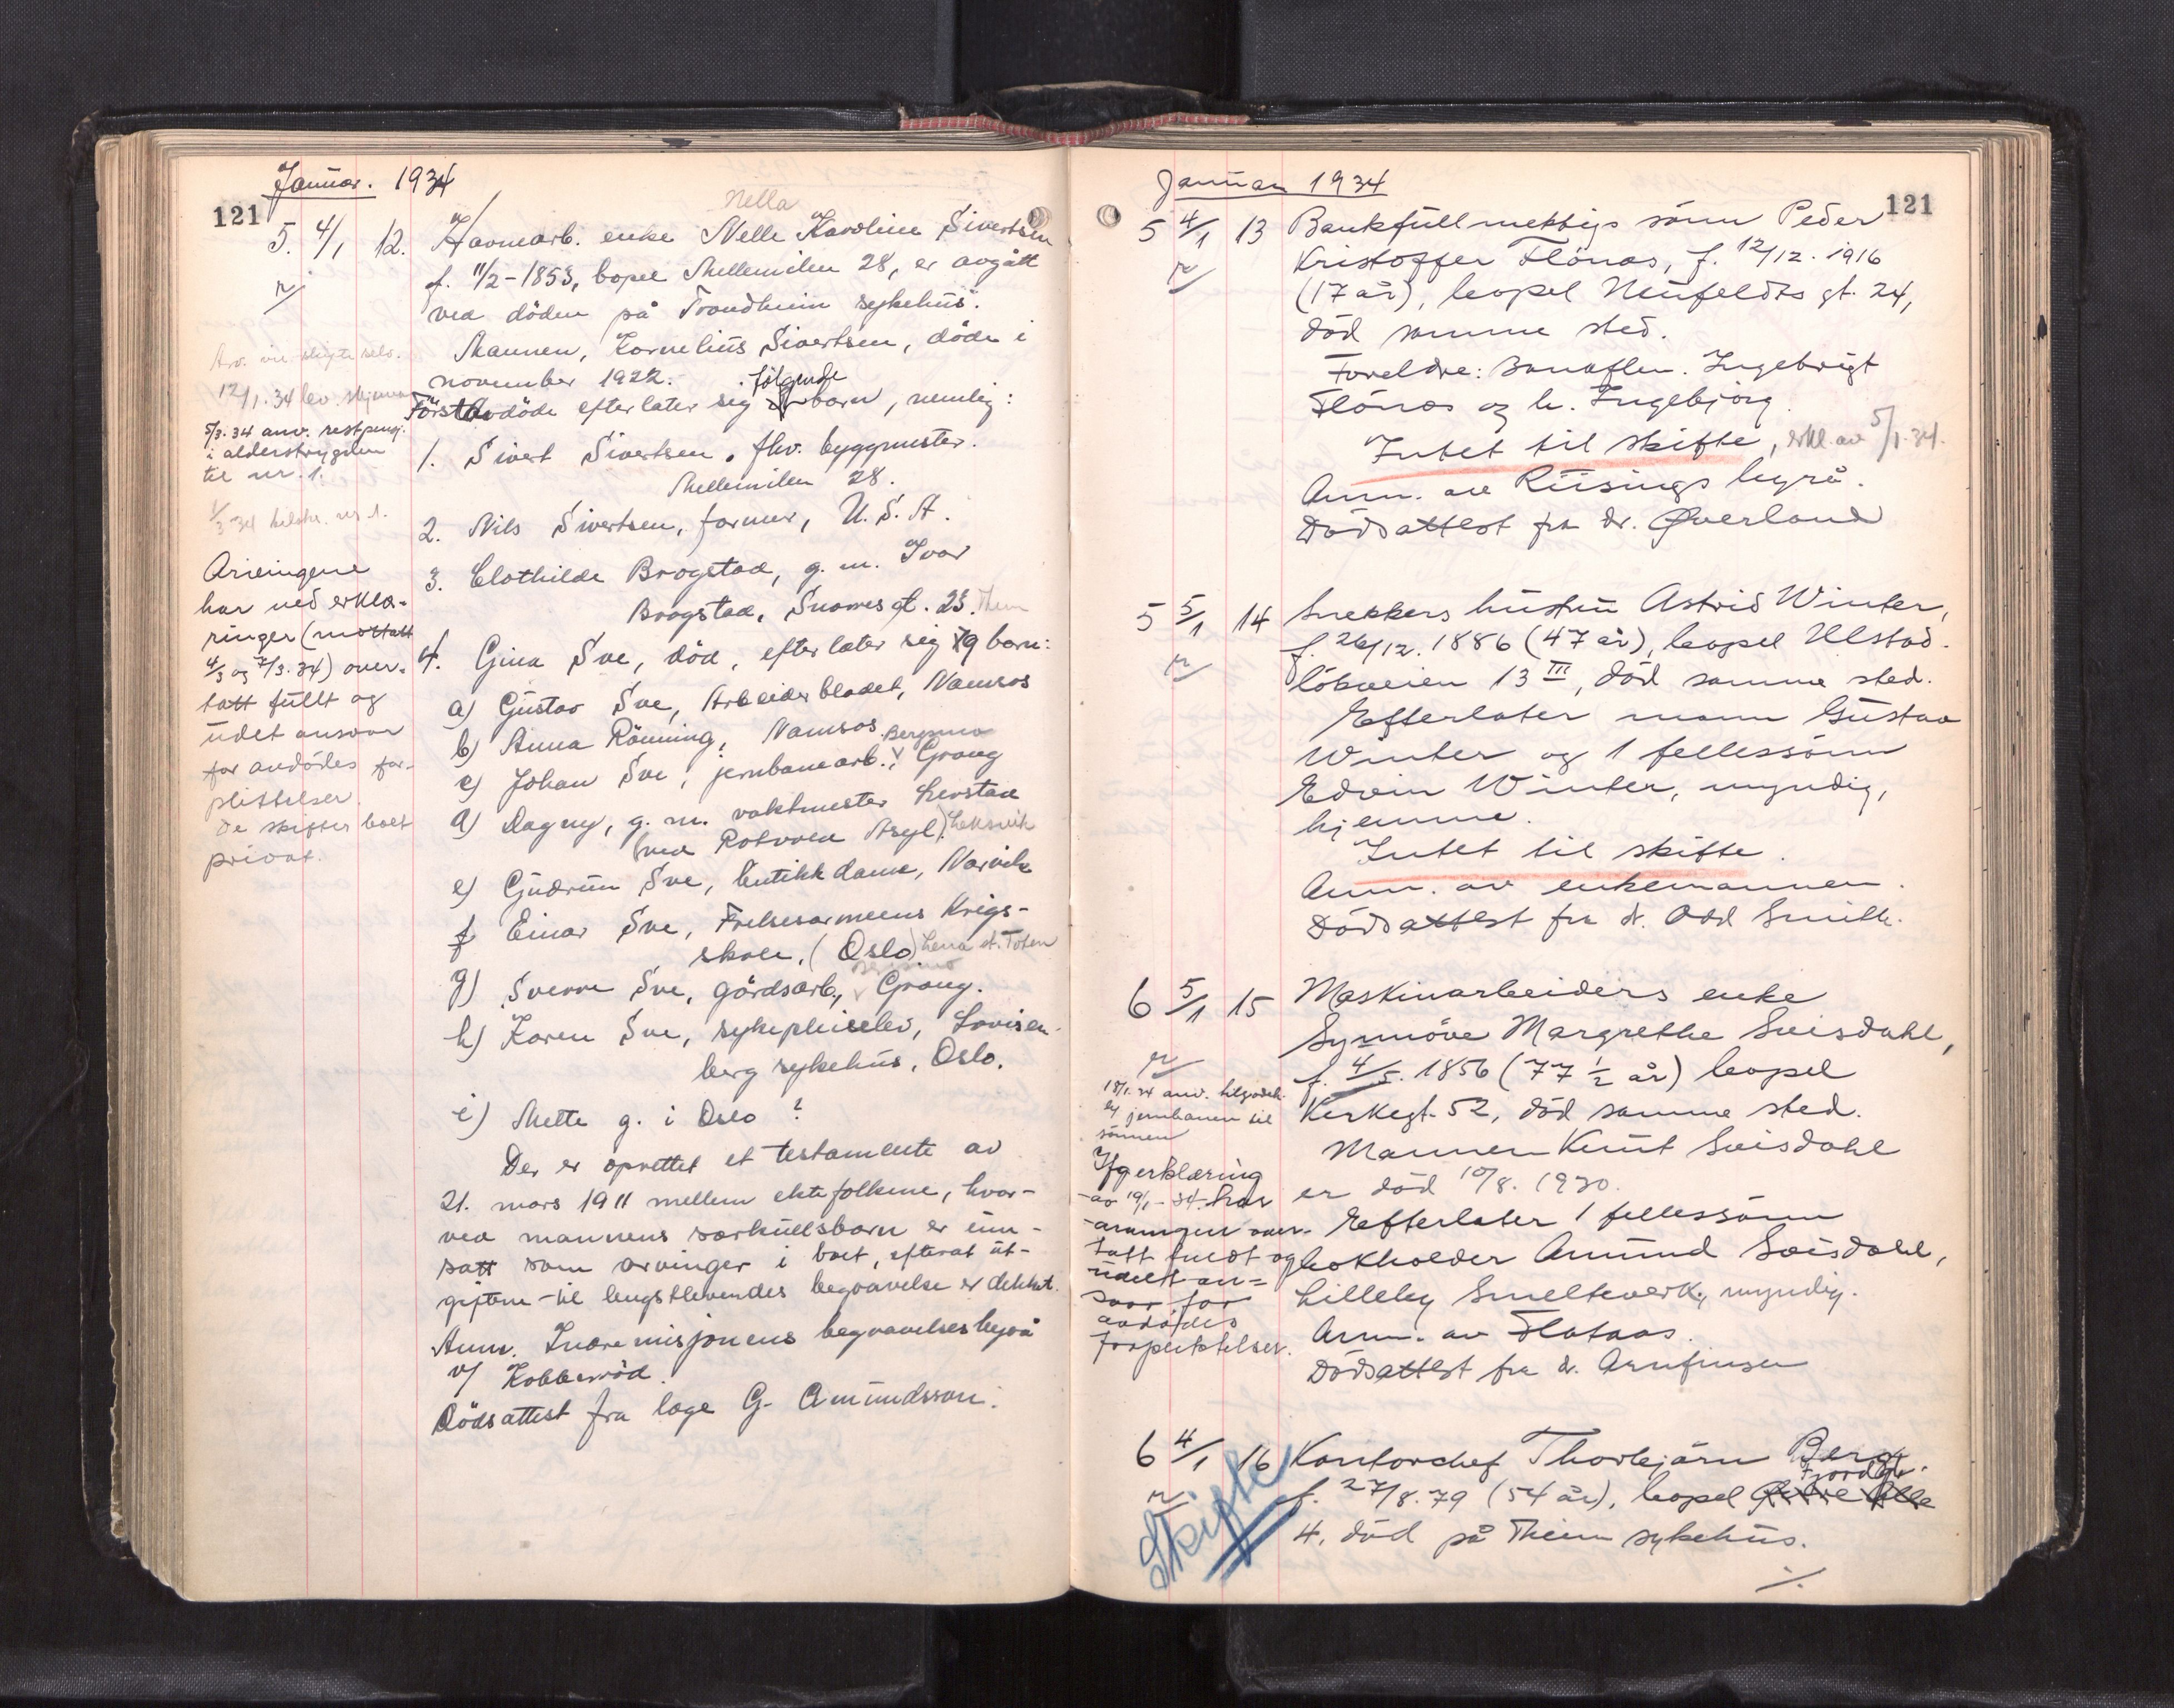 Januar. 1934
121
Nella
5. 4/1 12. Havnearb. enke Nelle Karoline Sivertsen
f. 11/2-1853, bopel Mellemilen 28, er avgått
ved döden på Trondheim sykehus.
Mannen, Kornelius Sivertsen, döde i
november 1922.
følgende
Förstavdöde efterlater sig barn, nemlig:
1. Sivert Sivertsen, fhv. byggmester.
Mellemilen 28.
2. Nils Sivertsen, farmer, U.S.A.
3. Clothilde Brogstad, g. m. Ivar
Brogstad, gt. 23.
4. Gina Sve, död, efterlater sig 9 barn:
a) Gustav Sve, Arbeiderbladet, Namsos
b) Anna Rönning, Namsos
Bergsmo
c) Johan Sve, jernbanearb., Grong
d) Dagny, g. m. vaktmester Levstad
(ved Rotvold Asyl) Leksvik
e) Gudrun Sve, butikkdame, Narvik
f Einar Sve, Frelsesarmeens Krigs-
skole, (Oslo) Lena st. Toten
g) Sverre Sve, gårdsarb., Grong.
h) Karen Sve, sykepleieelev, Lovisen-
berg sykehus, Oslo.
i) Mette g. i Oslo?
Der er oprettet et testamente av
21. mars 1911 mellem ektefolkene, hvor-
ved mannens særkullsbarn er inn-
satt som arvinger i boet, efterat ut-
giftene til lengstlevendes begravelse er dekket.
Anm. Indremisjonens begravelsesbyrå
v/ Kobberröd.
Dödsattest fra læge G. Amundsson.
Arv. vil skifte selv.
12/1.34 lev. skjema
5/3.34 anv. restpeng.
i alderstrygden
til nr. 1.
Arvingene
har ved erklæ-
ringer (mottatt
4/3 og 7/3.34) over-
tatt fullt og
udelt ansvar
for avdödes for-
pliktelser.
De skifter boet
privat.
Januar 1934
121
5 4/1 13 Bankfullmektigs sönn Peder
Kristoffer Flönas, f. 12/12.1916
(17 år), bopel Neufeldts gt. 24,
död samme sted.
Foreldre: Ingebrigt
Flönas og h. Ingebjörg
Intet til skifte, erkl. av 5/1.34.
Anm. av Rüsings byrå.
Dödsattest fra dr. Øverland
5 5/1 14 Snekkers hustru Astrid Winter,
f. 26/12.1886 (47 år), bopel Ulstad-
lökveien 13 III, död samme sted.
Efterlater mann Gustav
Winter og 1 fellessönn
Edvin Winter, myndig,
hjemme.
Intet til skifte.
Anm. av enkemannen.
Dödsattest fra dr. Odd Smith.
6 5/1 15 Maskinarbeiders enke
Synnöve Margrethe Svisdahl,
f. 4/5.1856 (77 1/2 år) bopel
Kirkegt. 52, död samme sted.
Mannen Knut Svisdahl
er död 10/8.1930.
Efterlater 1 fellessönn
bokholder Amund Svisdahl,
Lilleby Smelteverk, myndig.
Anm. av Flataas.
Dödsattest fra dr. Arnfinsen
18/1.34 anv. tilgodeh.
jernbanen til
sönnen
Ifg erklæring
av 19/1-34 har
arvingen over-
tatt fuldt og
udelt an-
svar for
avdödes
forpliktelser.
6 4/1 16 Kontorchef Thorbjörn Berg,
Fjordgt.
f. 27/8.79 (54 år), bopel
4, död på Thjem sykehus.
Skifte